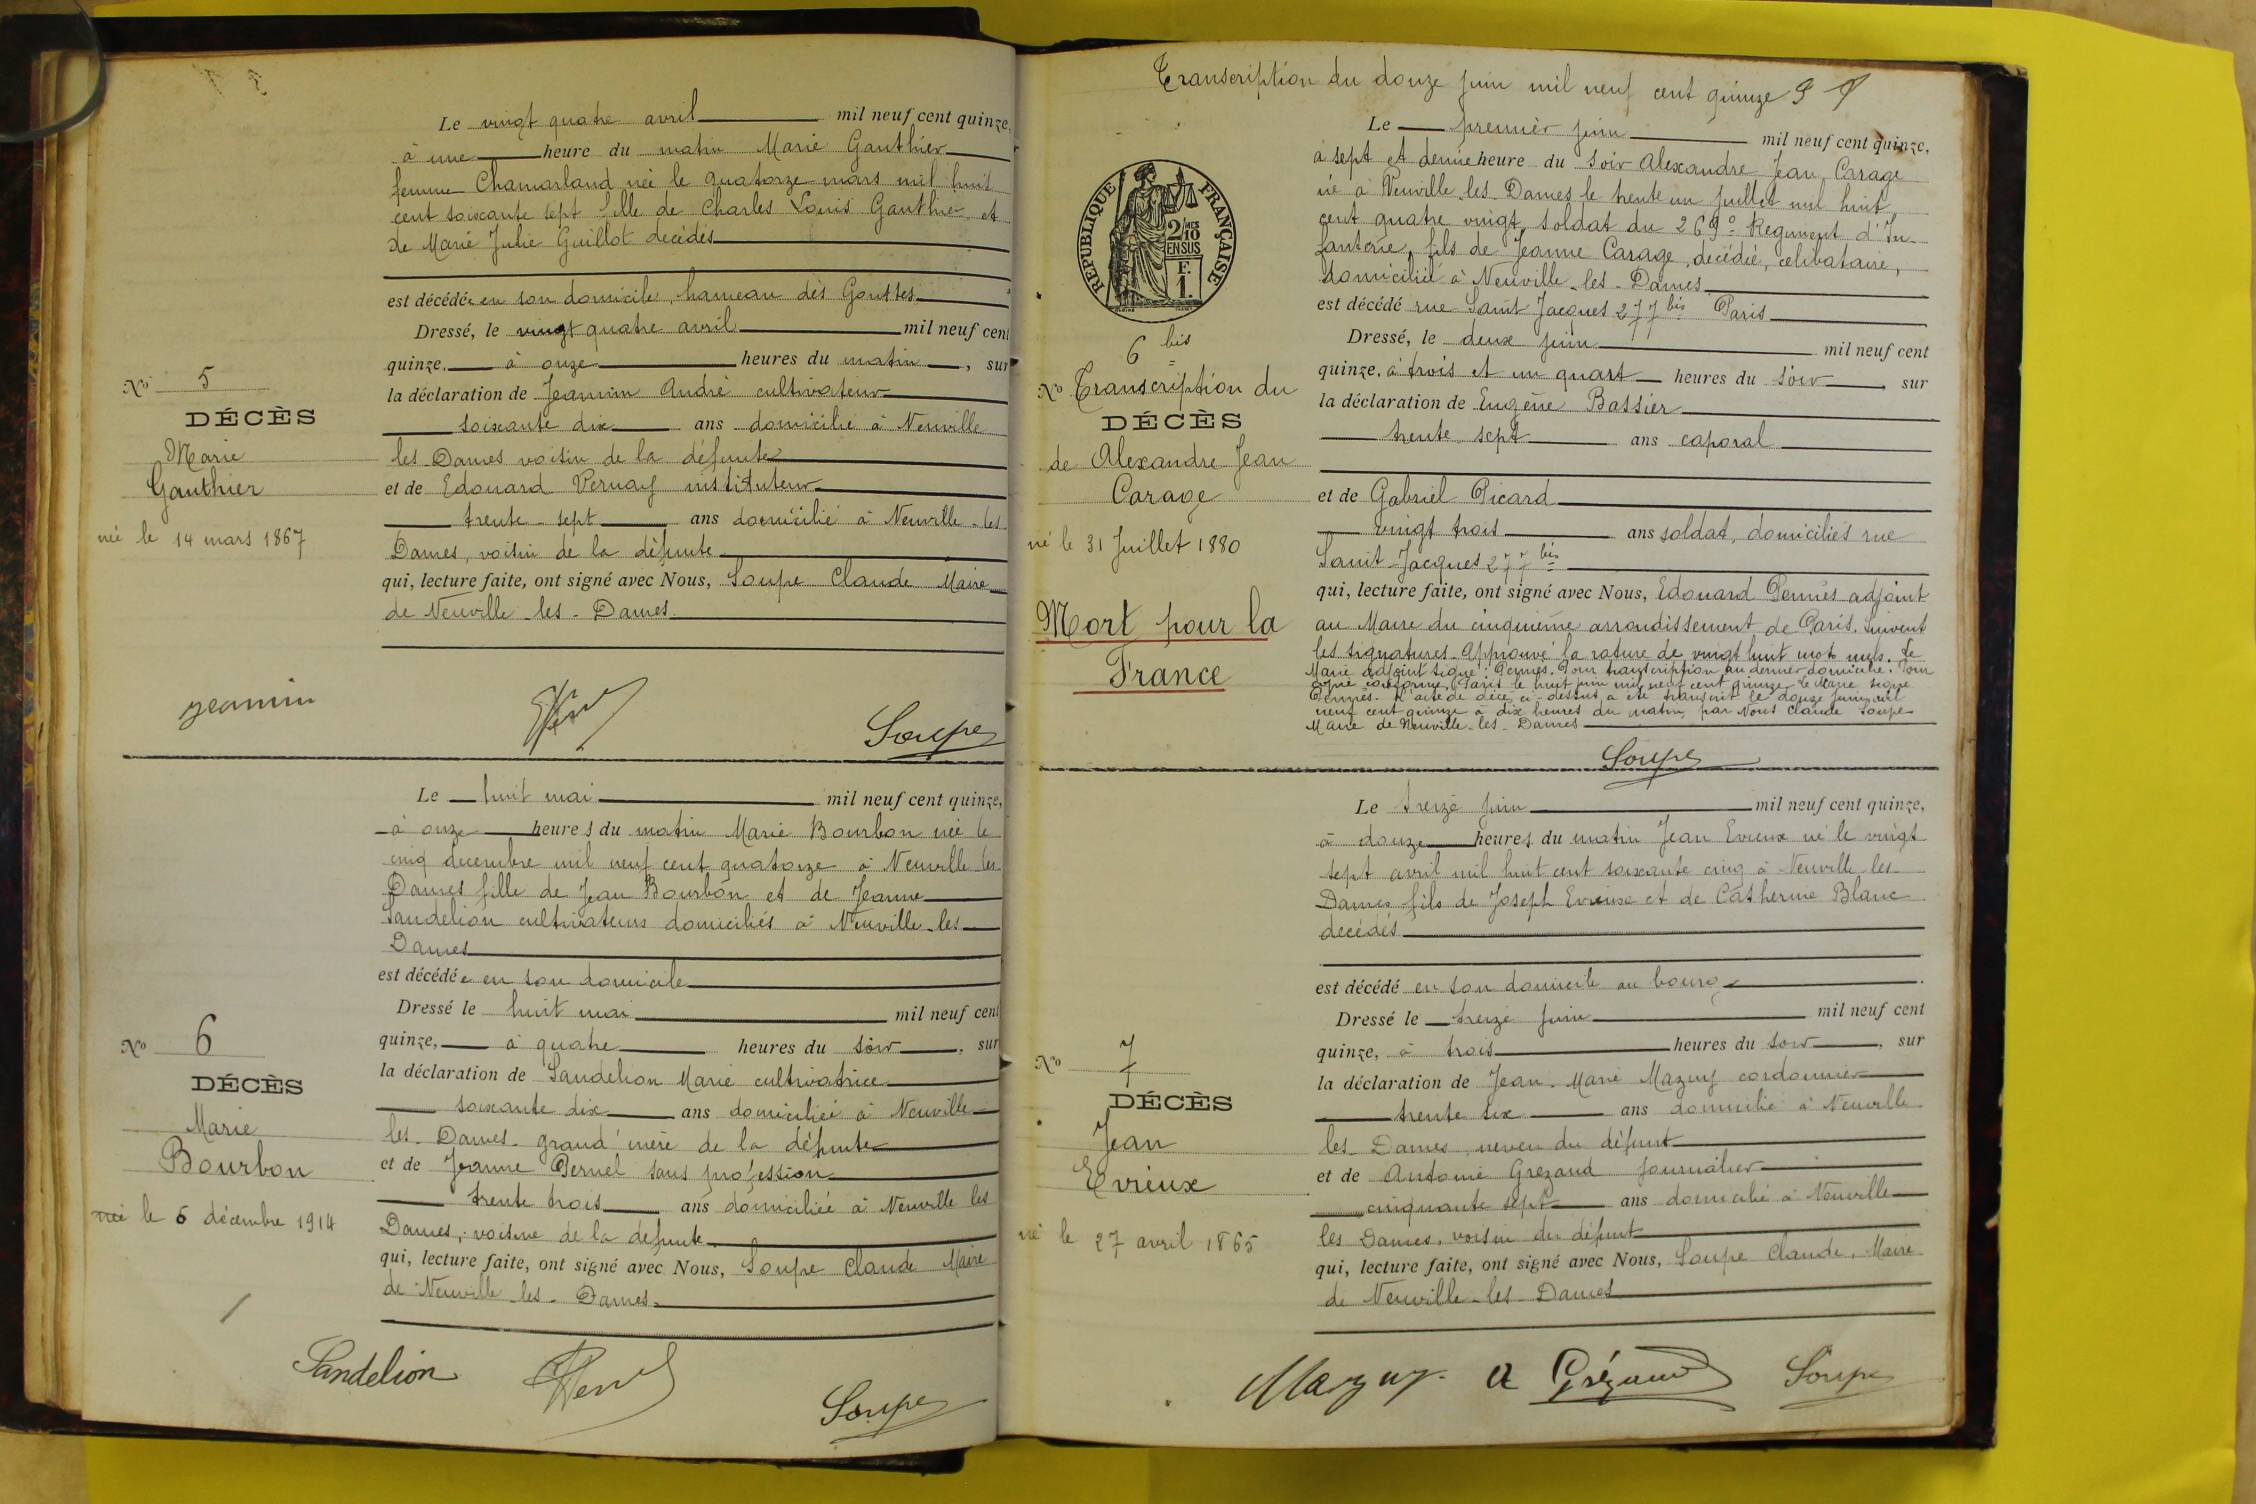 Le vingt quatre avril mil neuf cent quinze,
à une heure du matin Marie Gauthier
femme Chamarland née le quatorze mars mil huit
cent soixante sept fille de Charles Louis Gauthier et
de Marie Julie Guillot décédés
est décédée en son domicile, hameau des Gouttes
Dressé, le vingt quatre avril mil neuf cent
quinze, à onze heures du matin, sur
la déclaration de Jeannin André cultivateur
soixante dix ans domicilié à Neuville
les Dames voisin de la défunte
et de Edouard Vernay instituteur
trente-sept ans domicilié à Neuville-les
Dames, voisin de la défunte
qui, lecture faite, ont signé avec Nous, Soupe Claude Maire
de Neuville-les-Dames
No 5
DÉCÈS
Marie
Gauthier
née le 14 mars 1867
Jeannin
Soupe
Le huit mai mil neuf cent quinze,
à onze heures du matin Marie Bourbon née le
cinq décembre mil neuf cent quatorze à Neuville les
Dames fille de Jean Bourbon et de Jeanne
Sandelion cultivateurs domiciliés à Neuville-les
Dames
est décédée en son domicile
Dressé le huit mai mil neuf cent
quinze, à quatre heures du soir, sur
la déclaration de Sandelion Marie cultivatrice
soixante dix ans domiciliée à Neuville
les-Dames grand'mère de la défunte
et de Jeanne Pernel sans profession
trente trois ans domiciliée à Neuville les
Dames, voisine de la défunte
qui, lecture faite, ont signé avec Nous, Soupe Claude Maire
de Neuville-les-Dames.
No 6
DÉCÈS
Marie
Bourbon
née le 5 décembre 1914
Sandelion
Soupe
Transcription du douze juin mil neuf cent quinze
REPUBLIQUE FRANÇAISE
2/10 MES
EN SUS
F.
1.
Le premier juin mil neuf cent quinze,
à sept et demie heure du soir Alexandre Jean Carage
né à Neuville-les-Dames le trente un juillet mil huit
cent quatre vingt, soldat du 269e Régiment d'In-
fanterie, fils de Jeanne Carage, décédée, célibataire,
domicilié à Neuville-les-Dames
est décédé rue Saint Jacques 277 bis Paris
Dressé, le deux juin mil neuf cent
quinze, à trois et un quart heures du soir, sur
la déclaration de Eugène Bassier
trente sept ans caporal
et de Gabriel Picard
vingt trois ans soldat, domiciliés rue
Saint-Jacques 277 bis
qui, lecture faite, ont signé avec Nous, Edouard Pennès adjoint
au Maire du cinquième arrondissement de Paris. Suivent
les signatures. Approuvé la rature de vingt huit mots nuls. Le
Maire adjoint signé: Pennès. Pour transcription au dernier domicile. Pour
copie conforme, Paris le huit juin mil neuf cent quinze. Le Maire signé
Pennès. L'acte de décès ci-dessus a été transcrit le douze juin mil
neuf cent quinze à dix heures du matin, par Nous Claude Soupe
Maire de Neuville-les-Dames
6 bis
No Transcription du
DÉCÈS
de Alexandre Jean
Carage
né le 31 Juillet 1880
Mort pour la
France
Soupe
Le treize juin mil neuf cent quinze,
à douze heures du matin Jean Evrieux né le vingt
sept avril mil huit cent soixante cinq à Neuville les
Dames fils de Joseph Evrieux et de Catherine Blanc
décédés
est décédé en son domicile au bourg
Dressé le treize juin mil neuf cent
quinze, à trois heures du soir, sur
la déclaration de Jean-Marie Mazuy cordonnier
trente six ans domicilié à Neuville
les Dames neveu du défunt
et de Antoine Grezaud journalier
cinquante sept ans domicilié à Neuville
les Dames, voisin du défunt
qui, lecture faite, ont signé avec Nous, Soupe Claude, Maire
de Neuville-les-Dames
No 7
DÉCÈS
Jean
Evrieux
né le 27 avril 1865
Mazuy. A Grézaud Soupe